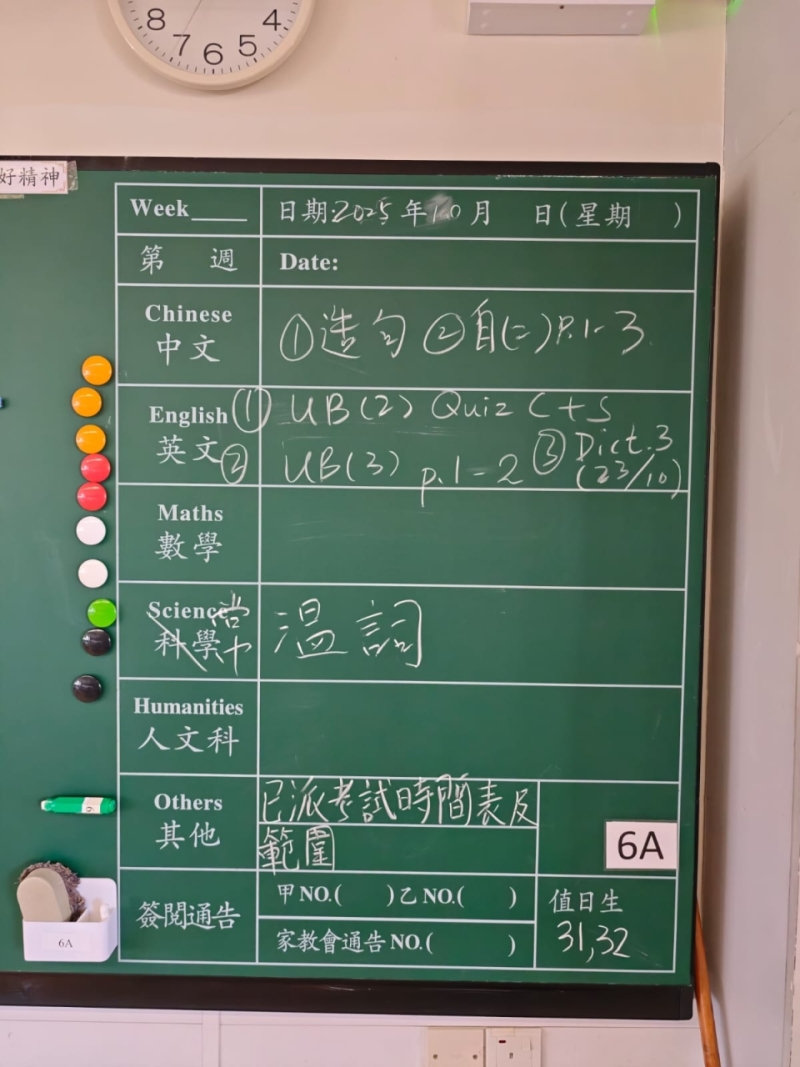 8 7 6 5 4
好精神
Week____ 日期:2025年10月 日(星期 )
第 週 Date:
Chinese
中文
①造句 ②自(二)P.1-3
English ① UB(2) Quiz C+S
英文 ② UB(3) p.1-2 ③ Dict.3
(23/10)
Maths
數學
Science 常
科學
溫詞
Humanities
人文科
Others
其他
已派考試時間表及
範圍
6A
簽閱通告
甲NO.( )乙NO.( )
家教會通告NO.( )
值日生
31,32
6A